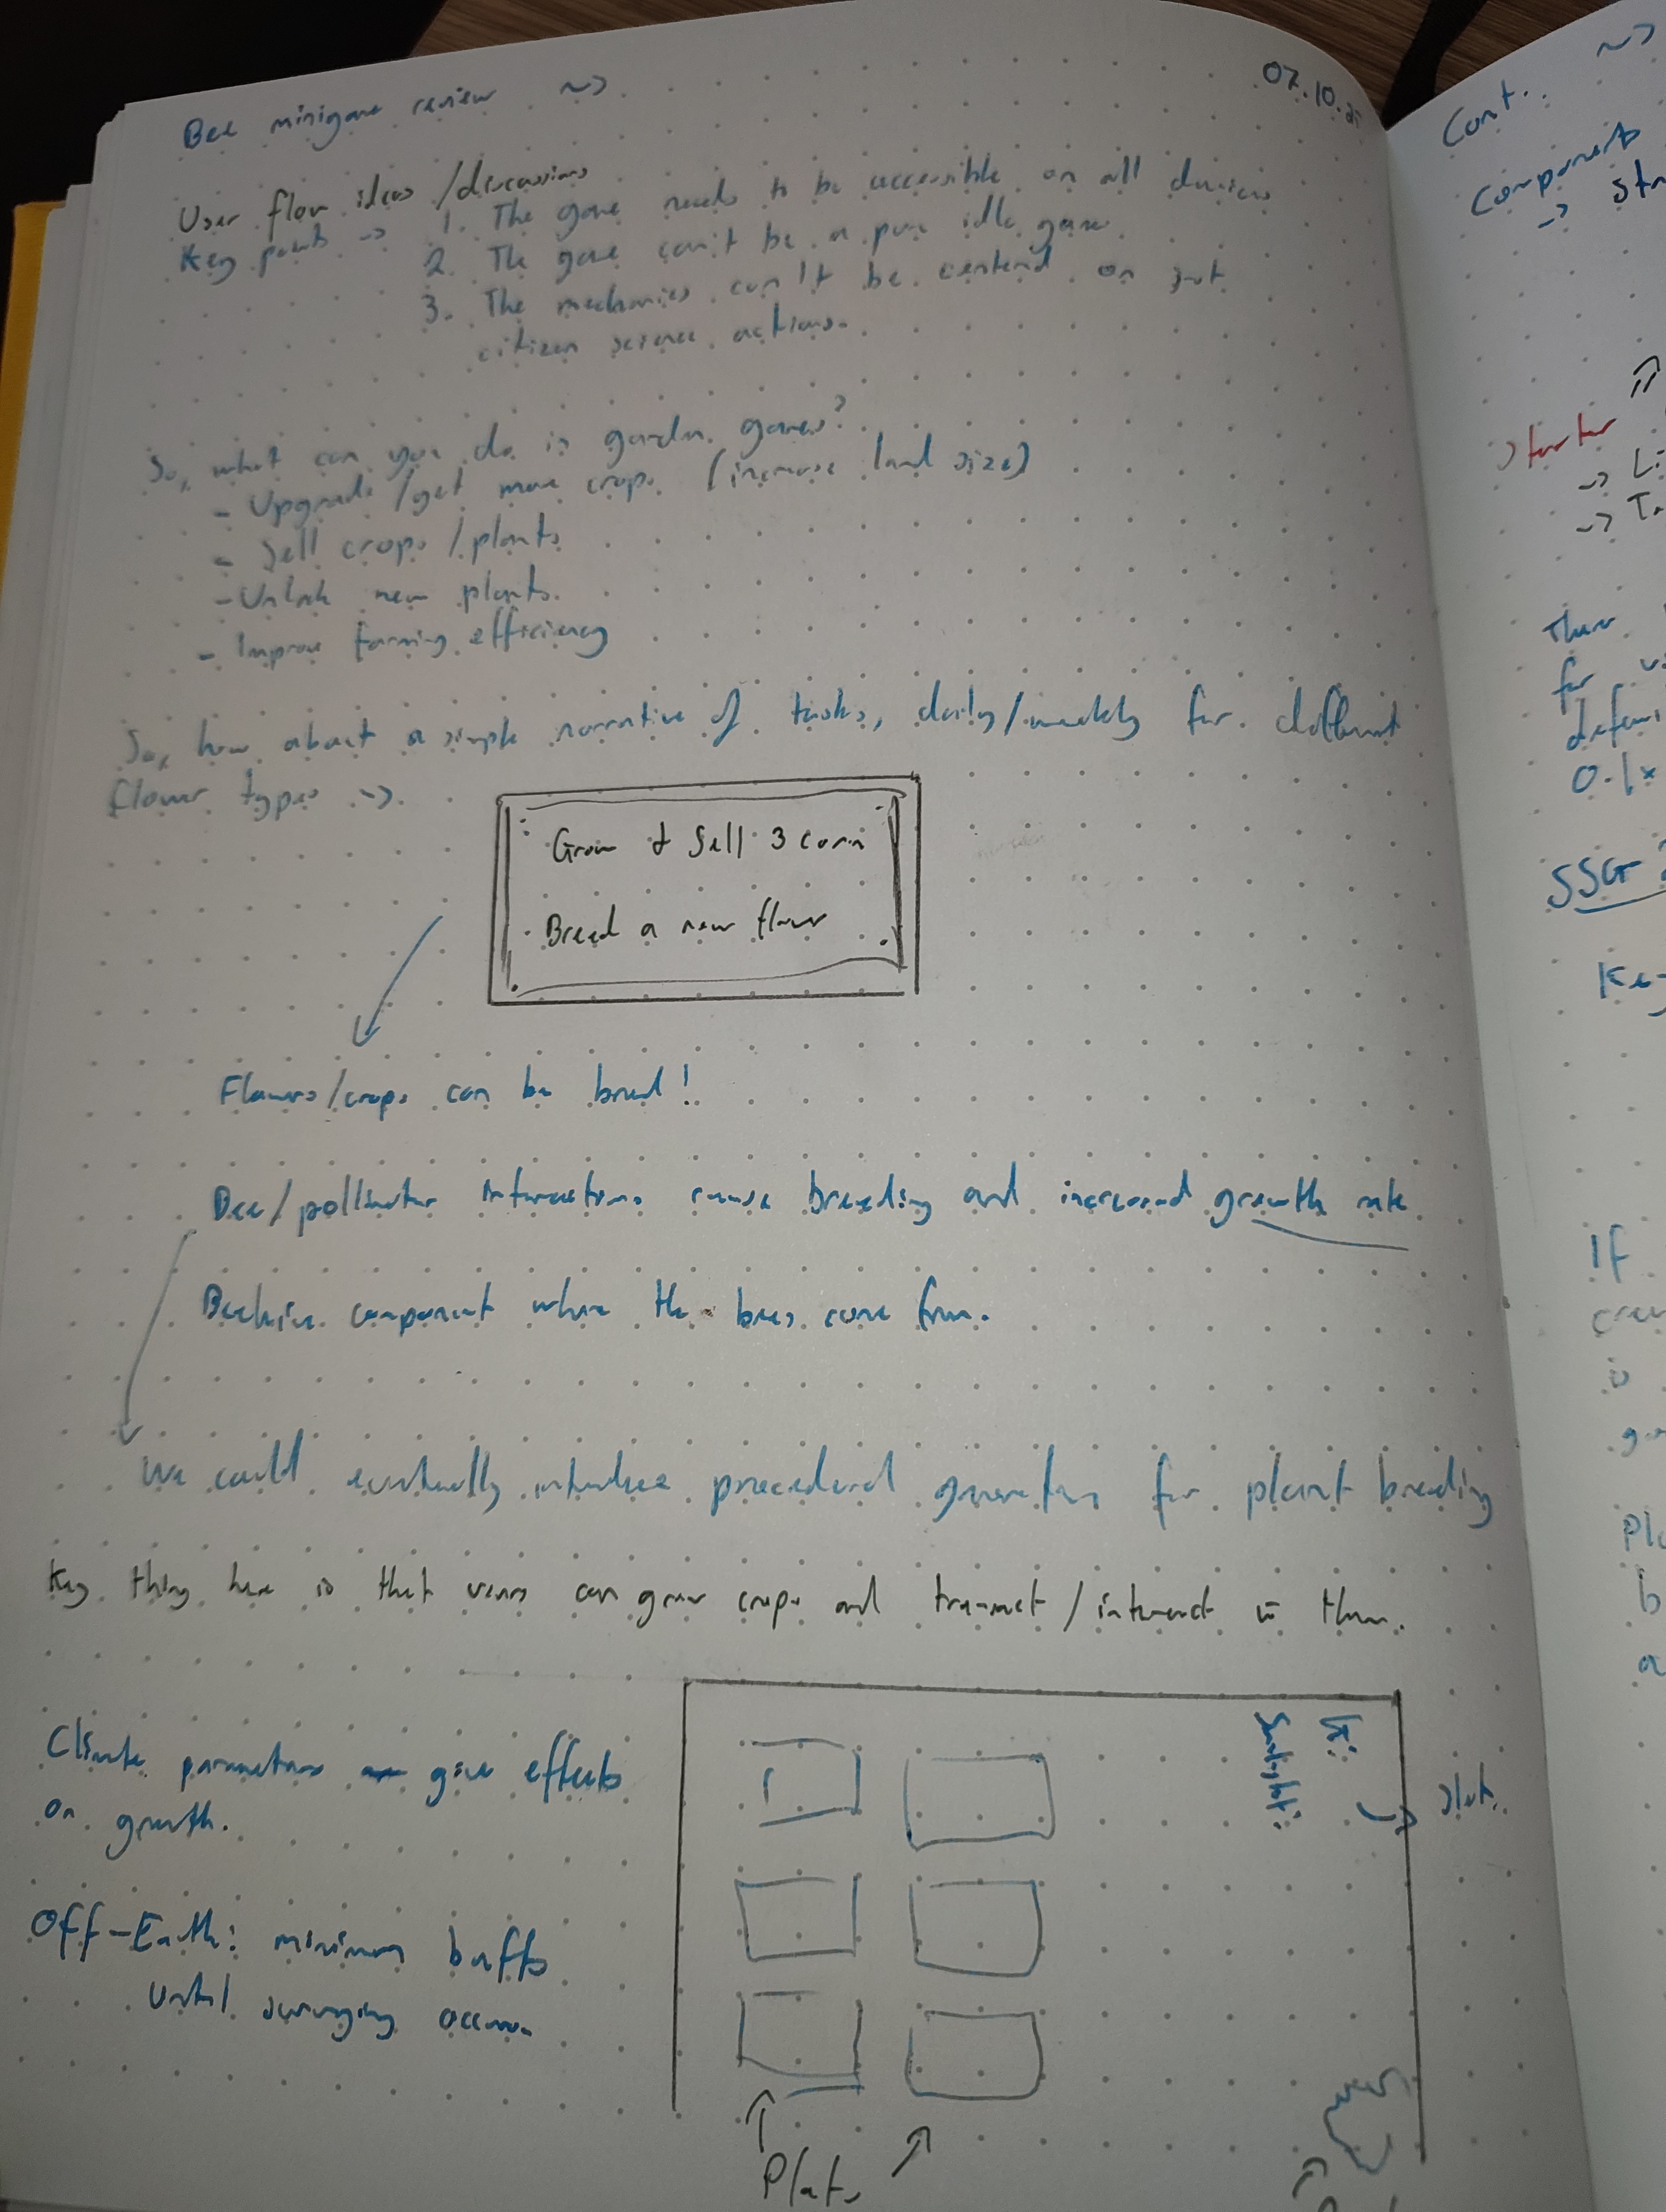 Bee minigame review ~>
07.10.25
User flow ideas /discussions
Key points -> 1. The game needs to be accessible on all devices
2. The game can't be a pure idle game
3. The mechanics can't be centered on just
citizen science actions.
So, what can you do in garden games?
- Upgrade/get more crops (increase land size)
- Sell crops/plants
- Unlock new plants.
- Improve farming efficiency
So, how about a simple narrative of tasks, daily/weekly for different
flower types ->
Grow & Sell 3 corn
Breed a new flower
Flowers/crops can be bred!
Bee/pollinator interactions cause breeding and increased growth rate
Beehive component where the bees come from.
We could eventually introduce procedural generation for plant breeding
Key thing here is that users can grow crops and transact/interact w them.
Climate parameters give effects
on growth.
Off-Earth: minimum buffs
until surveying occurs.
Sunlight:
Plots
Cont. ~>
Components
->
Starter
->
->
There
for
0.1x
SSG
If